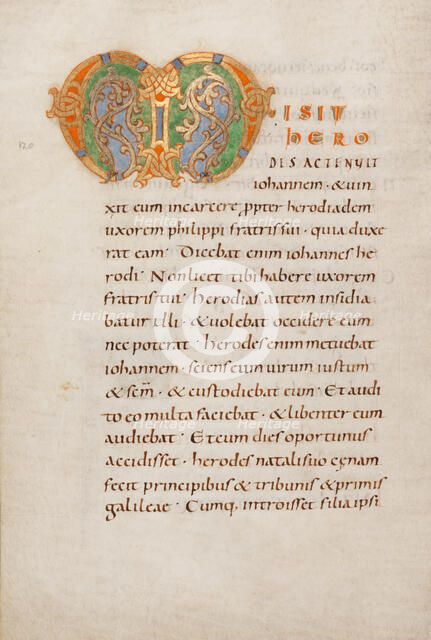 M ISIT
HERO
DES ACTENUIT
iohannem · & uin
xit eum incarcere ppter herodiadem
uxorem philippi fratris sui · quia duxe
rat eam · Dicebat enim iohannes he
rodi · Non licet tibi habere uxorem
fratris tui · herodias autem insidia
batur illi · & uolebat occidere eum
nec poterat · herodes enim metuebat
iohannem · sciens eum uirum iustum
& scm · & custodiebat eum · Et audi
to eo multa faciebat · & libenter eum
audiebat · Et cum dies oportunus
accidisset · herodes natali suo cenam
fecit principibus & tribunis & primis
galileae · Cumq, introisset filia ipsi
120
Heritage
Heritage
Heritage
Heritage
Heritage
Heritage
Heritage